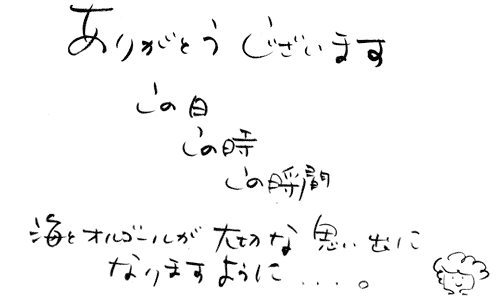 ありがとうございます
この日
この時
この瞬間
海とオルゴールが大切な思い出に
なりますように・・・・。